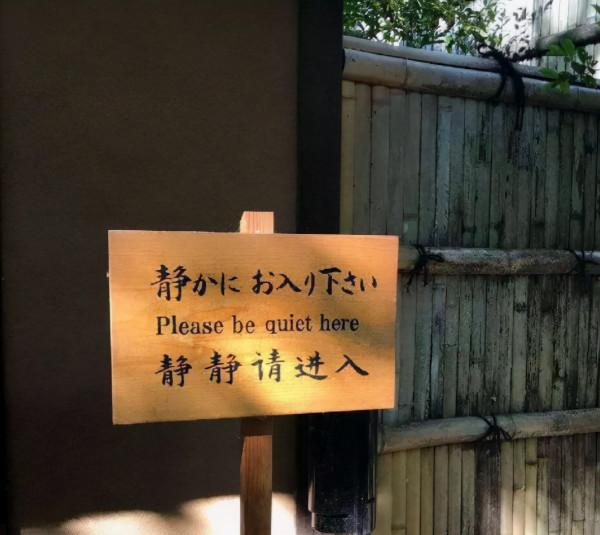 静かに お入り下さい
Please be quiet here
静静请进入